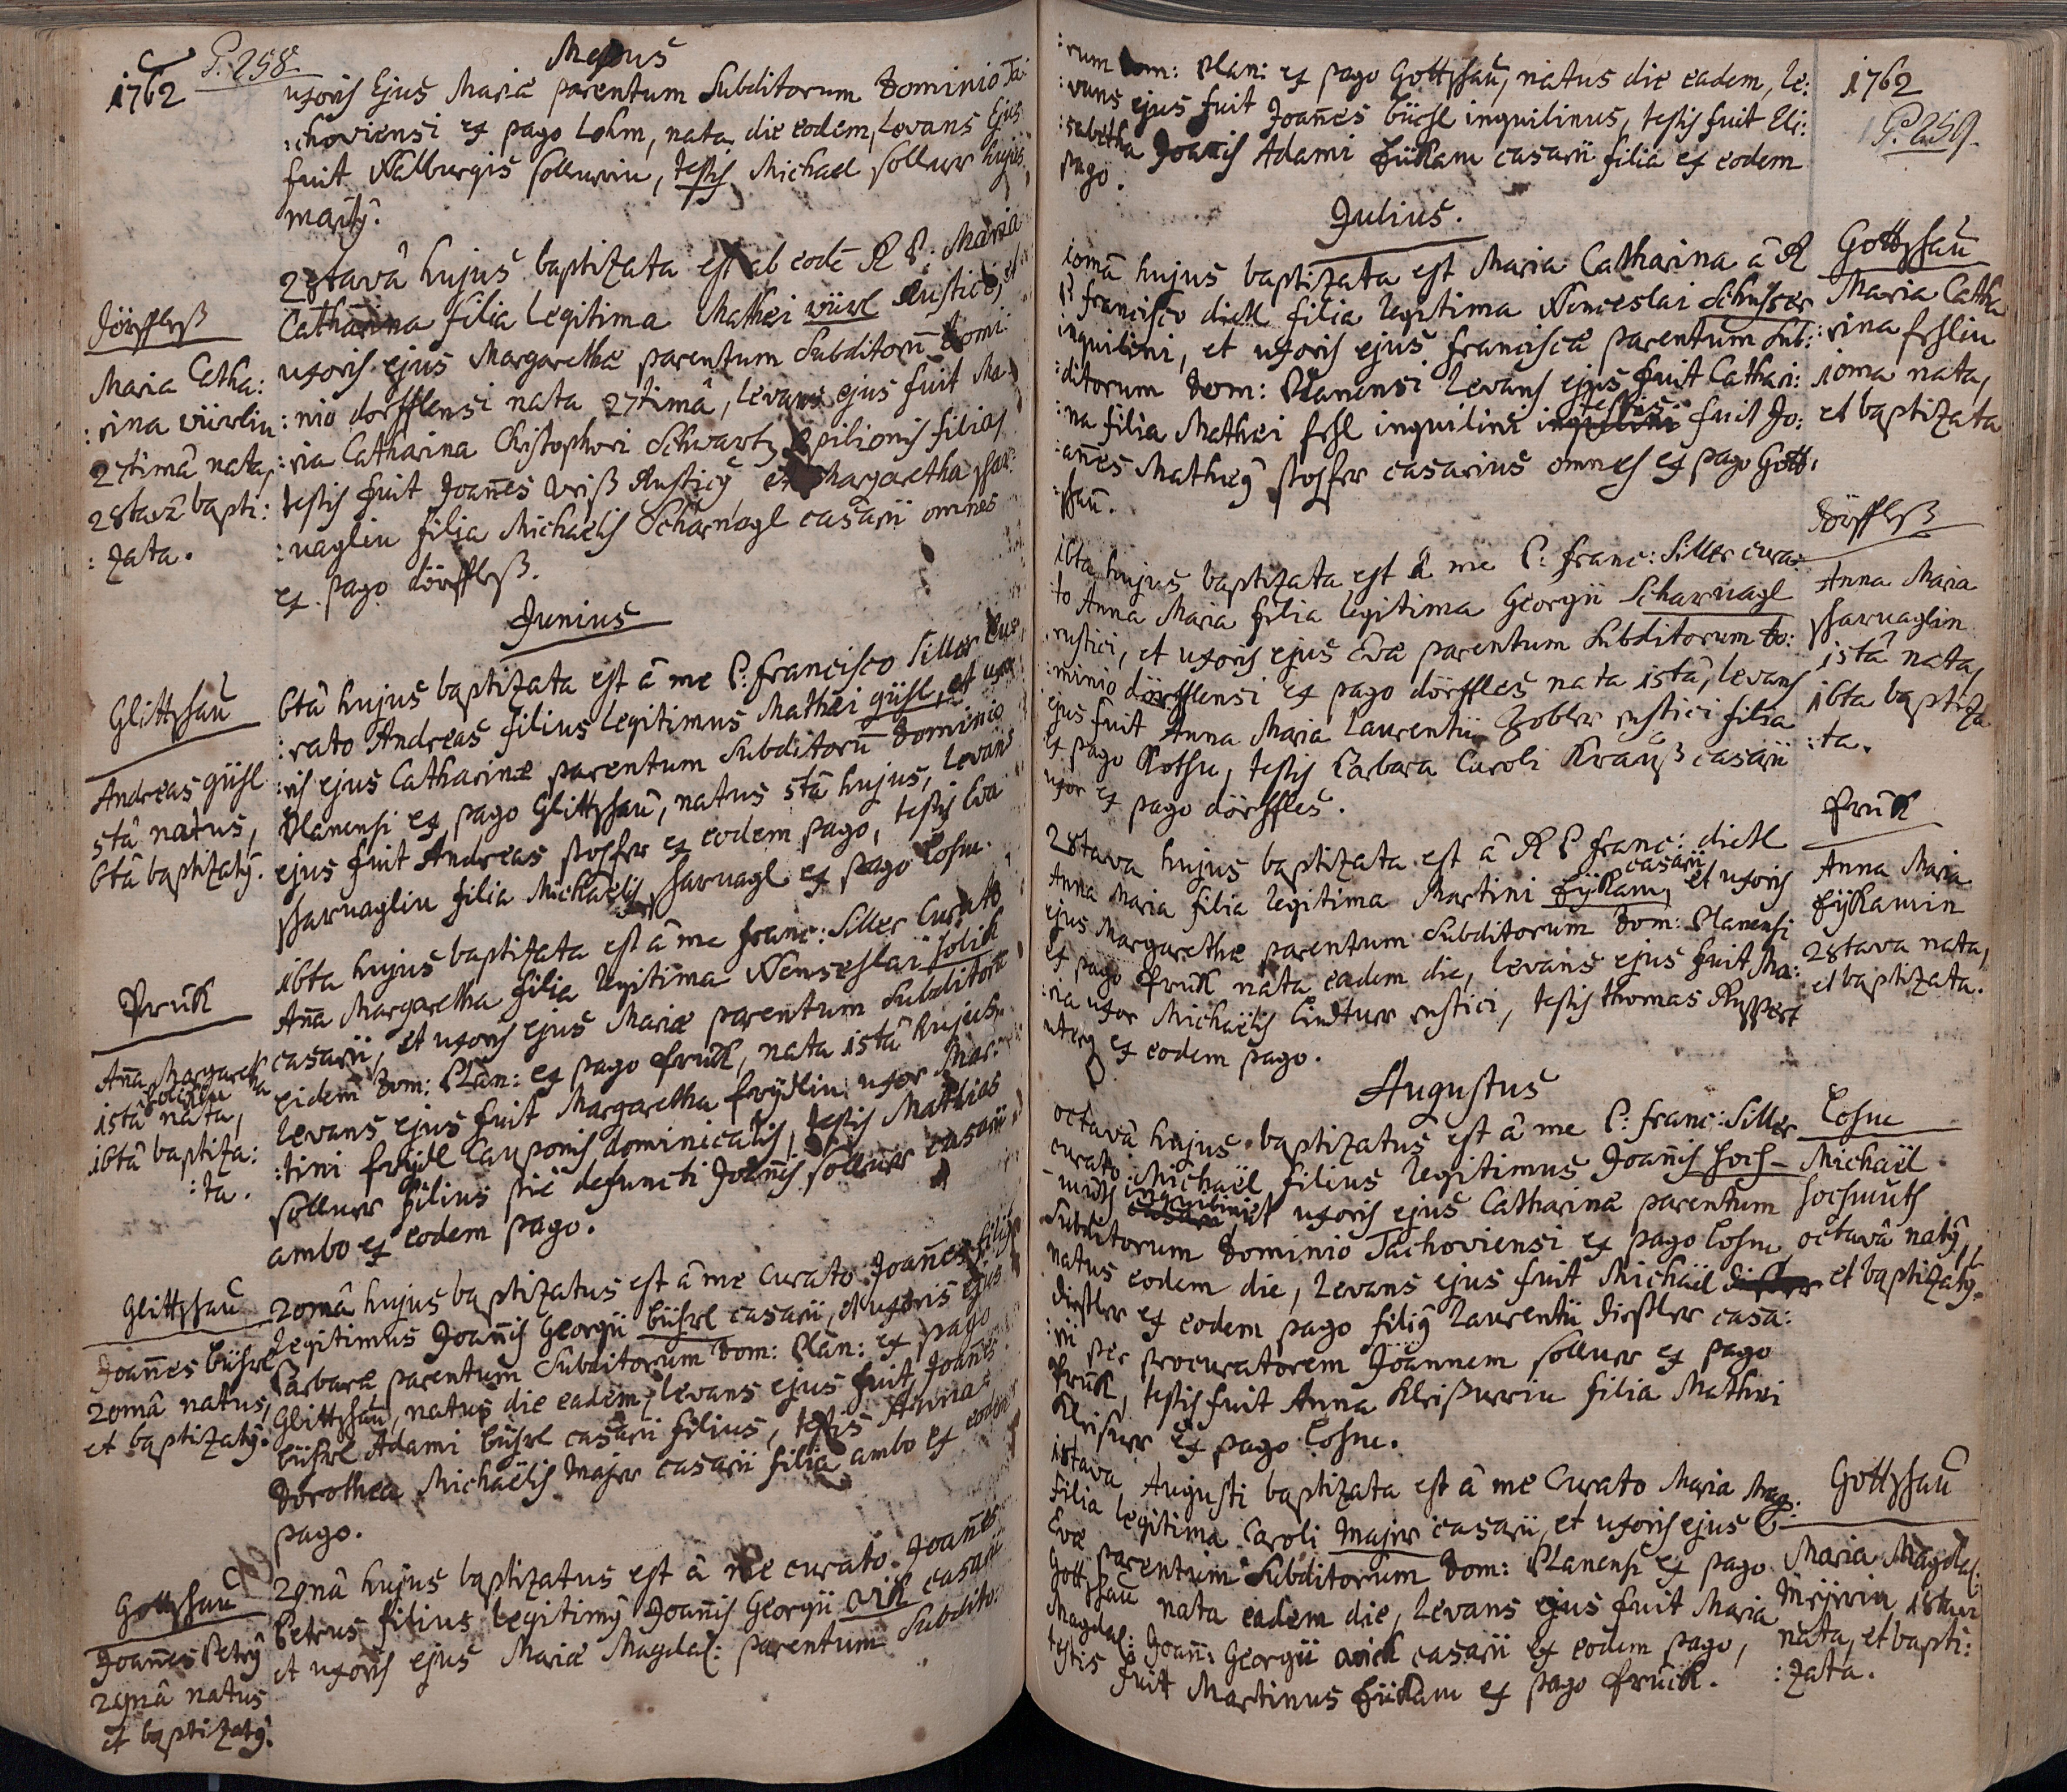 1762
P. 258.
Majus
uxoris Ejus Mariæ parentum Subditorum Dominio Ta
:choviensi ex pago Lohm, nata die eodem, Levans Ejus
fuit Walburgis sollnerin, testis Michael sollner hujus
maritg.
Dörffleß
Maria Catha:
:rina würlin
27timâ nata,
28tavâ bapti:
:zata.
28tavâ hujus baptizata est ab eodē R P: Maria
Catharina filia legitima Mathei würl Rustici, et
uxoris ejus Margarethæ parentum Subditorū Domi:
:nio dörfflensi nata 27timâ, levans ejus fuit Ma:
:ria Catharina Christophori Schwartz opilionis filia,
testis fuit Joañes weiß Rusticg et Margaretha schar:
:naglin filia Michaelis Scharnagl casarii omnes
ex pago dörffleß.
Junius
Glittschau
Andreas güsl
5tâ natus,
6tâ baptizatg.
6tâ hujus baptizata est â me P: Francisco Siller Cu
:rato Andreas filius Legitimus Mathei güsl, et uxo
:ris ejus Catharinæ parentum Subditorū Dominio
Planensi ex pago Glittschau, natus 5tâ hujus, Levans
ejus fuit Andreas stocher ex eodem pago, testis Eva
scharnaglin filia Michaelis scharnagl ex pago Losen.
Pruk
Aña Margaretha
solikin
15tâ nata,
16tâ baptiza:
:ta.
16ta hujus baptizata est â me Franc: Siller Curato
Aña Margaretha filia legitima Wenceslai solik
casarii, et uxoris ejus Mariæ parentum Subditorū
eidem Dom: Plan: ex pago Pruk, nata 15tâ hujus,
Levans ejus fuit Margaretha freydlin uxor Mar:
:tini freydl Cauponis dominicalis, testis Mathias
sollner filius piè defuncti Joañis sollner casarii
ambo ex eodem pago.
Glittschau
Joañes büchel
20mâ natus,
et baptizatg.
20mâ hujus baptizatus est â me Curato Joañes filius
Legitimus Joañis Georgii büchel casarii, et uxoris ejus
Barbaræ parentum Subditorum Dom: Plan: ex pago
Glittschau, natus die eadem, levans ejus fuit Joañes
büchel Adami büchel casarii filius, testis Anna
Dorothea Michaëlis Majer casarii filia ambo ex eodem
pago.
Gottschau
Joañes Petrg
29nâ natus
et baptizatg.
29nâ hujus baptizatus est â me curato Joañes
Petrus filius legitimg Joañis Georgii Wik casarii
et uxoris ejus Mariæ Magdal: parentum Subdito:
1762
P. 259.
:rum Dom: Plan: ex pago Gottschau, natus die eadem, le:
:vans ejus fuit Joañes büchl inquilinus, testis fuit Eli:
:sabetha Joañis Adami Hükam casarii filia ex eodem
pago.
Julius.
Gottschau
Maria Catha
:rina
10ma nata,
et baptizata
10mâ hujus baptizata est Maria Catharina â R
P: Francisco dietl filia legitima Wenceslai
inquilini, et uxoris ejus Franciscæ parentum Sub:
:ditorum Dom: Planensi Levans ejus fuit Cathari:
:na filia Mathei inquilini testis fuit Jo:
:añes Matheg stocher casarius omnes ex pago Gott:
:schau.
Dörffleß
Anna Maria
scharnaglin
15tâ nata,
16ta baptiza
:ta.
16ta hujus baptizata est â me P: Franc: Siller cura:
to Anna Maria filia legitima Georgii Scharnagl
rustici, et uxoris ejus Evæ parentum Subditorum do:
:minio dörfflensi ex pago dörffles nata 15tâ, levans
ejus fuit Anna Maria Laurentii Zobler rustici filia
ex pago Kothen, testis Barbara Caroli Krauß casarii
uxor ex pago dörffles.
Pruk
Anna Maria
Hÿkamin
28tava nata,
et baptizata.
28tava hujus baptizata est â R P Franc: dietl
Anna Maria filia legitima Martini Hÿkam casarii et uxoris
ejus Margarethæ parentum Subditorum Dom: Planensi
ex pago Pruk nata eadem die, levans ejus fuit Ma:
:ria uxor Michaëlis Lindtner rustici, testis Thomas Ruppert
uterq ex eodem pago.
Augustus
Losen
Michaël
hochmuth
octavâ natg,
et baptizatg.
octavâ hujus baptizatus est â me P: Franc: Siller
curato Michaël filius legitimus Joañis hoch-
-muth inquilini et uxoris ejus Catharinæ parentum
Subditorum Dominio Tachoviensi ex pago Losen
natus eodem die, Levans ejus fuit Michäel
dießler ex eodem pago filig Laurentii dießler casa:
:rii per procuratorem Joannem sollner ex pago
Pruk, testis fuit Anna Kleißnerin filia Mathei
Kleißner ex pago Losen.
Gottschau
Maria Magdal:
Mejerin 18tava
nata, et bapti:
:zata.
18tava Augusti baptizata est â me Curato Maria Mag:
filia legitima Caroli Majer casarii, et uxoris ejus
Evæ parentum Subditorum Dom: Planensi ex pago
Gottschau nata eadem die, Levans ejus fuit Maria
Magdal: Joañ: Georgii Wick casarii ex eodem pago,
testis fuit Martinus Hükam ex pago Pruck.